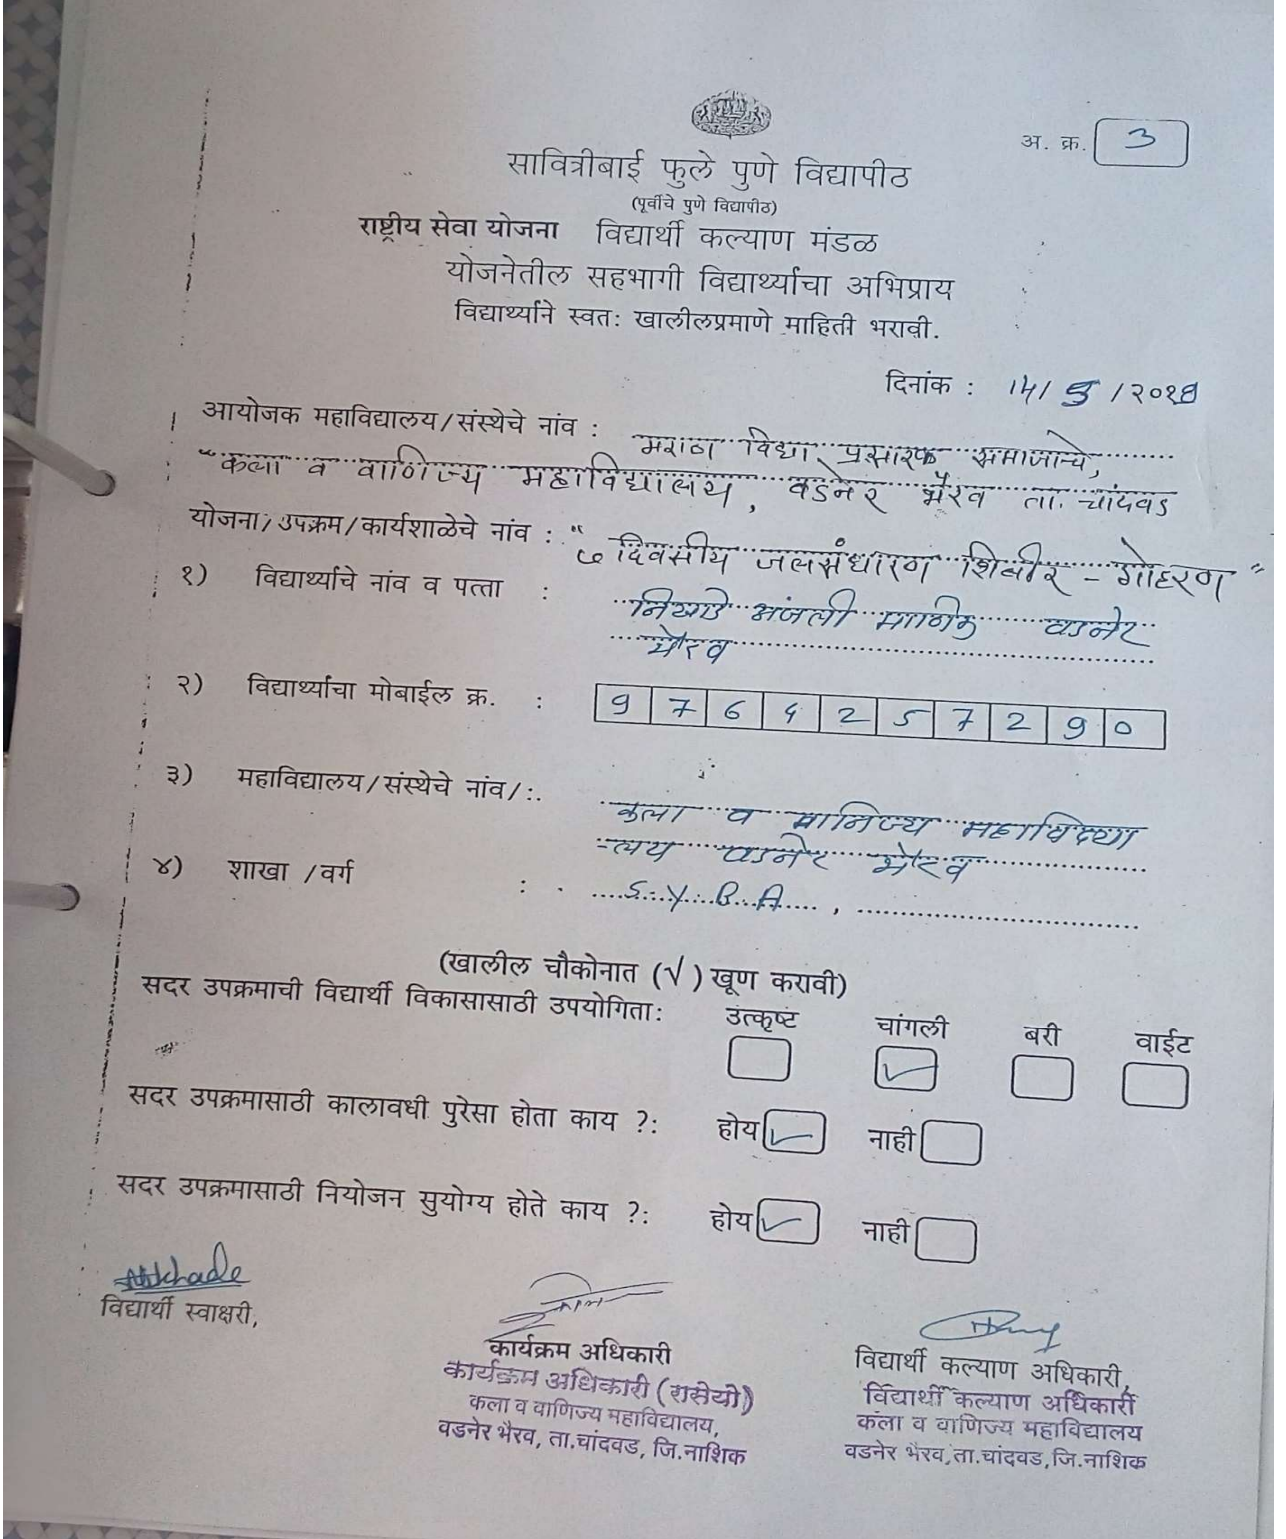 अ. क्र. 3
सावित्रीबाई फुले पुणे विद्यापीठ
(पूर्वीचे पुणे विद्यापीठ)
राष्ट्रीय सेवा योजना विद्यार्थी कल्याण मंडळ
योजनेतील सहभागी विद्यार्थ्यांचा अभिप्राय
विद्यार्थ्याने स्वतः खालीलप्रमाणे माहिती भरावी.
दिनांक :
आयोजक महाविद्यालय/संस्थेचे नांव : मराठा विद्या प्रसारक समाजाचे,
"कला व वाणिज्य महाविद्यालय, वडनेर भैरव ता. चांदवड
योजना/उपक्रम/कार्यशाळेचे नांव : "७ दिवसीय जलसंधारण शिबीर - गोहरण"
१) विद्यार्थ्याचे नांव व पत्ता : निखाडे अंजली माणिक वडनेर
भैरव
२) विद्यार्थ्यांचा मोबाईल क्र. : 9764257290
३) महाविद्यालय/संस्थेचे नांव/:. कला व वानिज्य महाविद्या
-लय वडनेर भैरव
४) शाखा /वर्ग : S.Y.B.A.,
(खालील चौकोनात (√) खूण करावी)
सदर उपक्रमाची विद्यार्थी विकासासाठी उपयोगिता: उत्कृष्ट चांगली बरी वाईट
सदर उपक्रमासाठी कालावधी पुरेसा होता काय ?: होय नाही
सदर उपक्रमासाठी नियोजन सुयोग्य होते काय ?: होय नाही
विद्यार्थी स्वाक्षरी,
कार्यक्रम अधिकारी
कार्यक्रम अधिकारी (रासेयो)
कला व वाणिज्य महाविद्यालय,
वडनेर भैरव, ता.चांदवड, जि.नाशिक
विद्यार्थी कल्याण अधिकारी,
विद्यार्थी कल्याण अधिकारी
कला व वाणिज्य महाविद्यालय
वडनेर भैरव,ता.चांदवड,जि.नाशिक